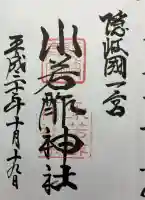 隠岐國一宮
水若酢神社
平成二十年十月十九日